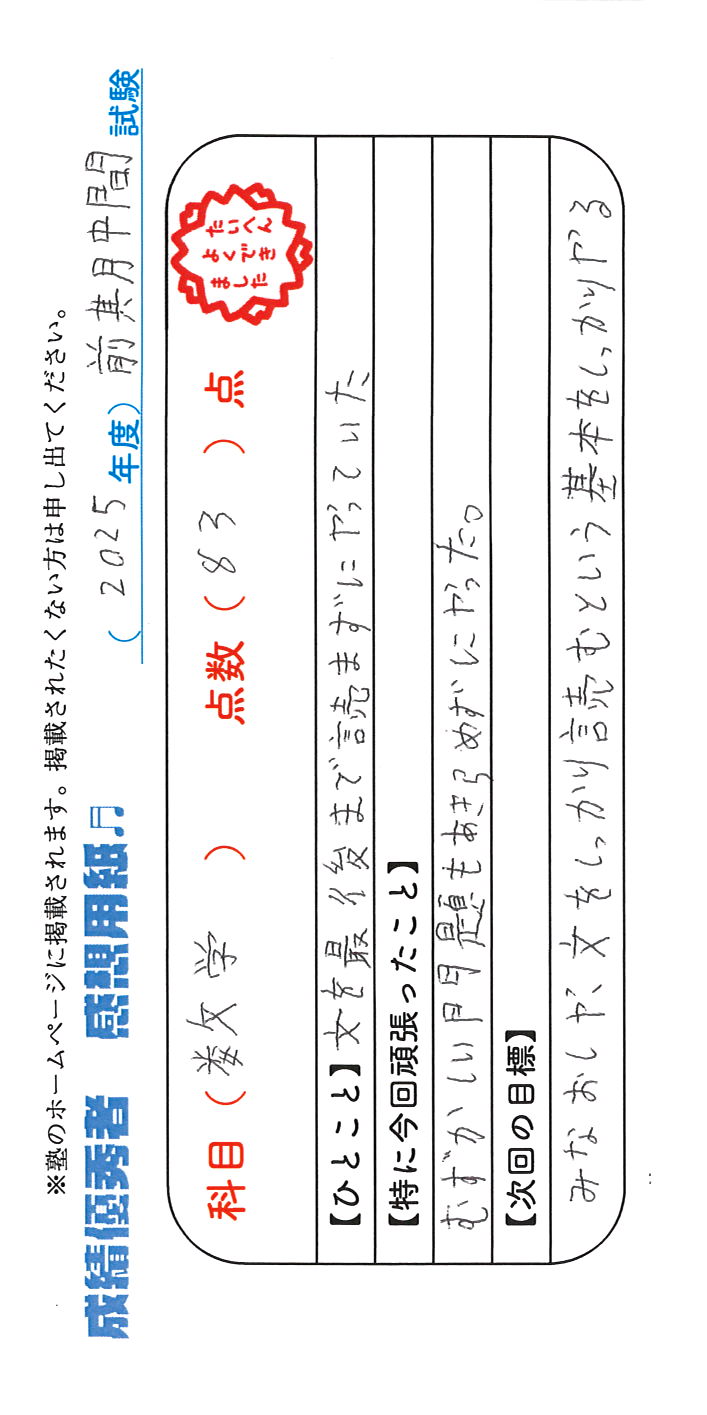 ※塾のホームページに掲載されます。掲載されたくない方は申し出てください。
成績優秀者 感想用紙♬ (2025年度)前期中間試験
科目(数学)点数(83)点
たいへん
よくでき
ました
【ひとこと】文を最後まで読まずにやっていた
【特に今回頑張ったこと】
むずかしい問題もあきらめずにやった。
【次回の目標】
みなおしや、文をしっかり読むという基本をしっかりやる